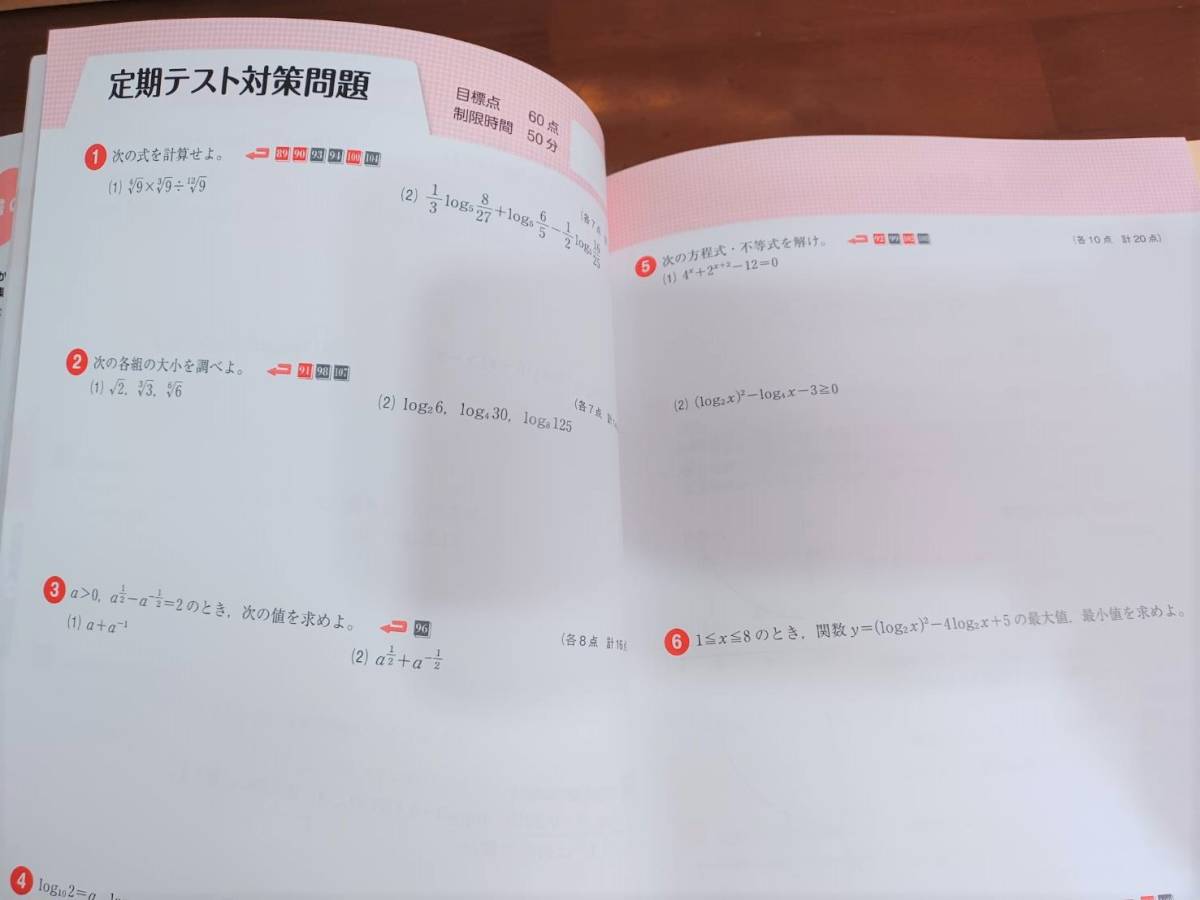 定期テスト対策問題
目標点 60点
制限時間 50分
1 次の式を計算せよ。 89 90 93 94 100 104
(各7点
(1) ⁴√9×³√9÷¹²√9
(2) 1/3 log₅ 8/27 + log₅ 6/5 − 1/2 log₅ 16/25
2 次の各組の大小を調べよ。 91 98 107
(各7点 計
(1) √2, ³√3, ⁶√6
(2) log₂6, log₄30, log₈125
3 a>0, a^(1/2)−a^(−1/2)=2のとき，次の値を求めよ。 96
(各8点 計16点
(1) a+a⁻¹
(2) a^(1/2)+a^(−1/2)
4 log₁₀2=a
5 次の方程式・不等式を解け。
(各10点 計20点)
(1) 4^x+2^(x+2)−12=0
(2) (log₂x)²−log₄x−3≧0
6 1≦x≦8のとき，関数y=(log₂x)²−4log₂x+5の最大値，最小値を求めよ。